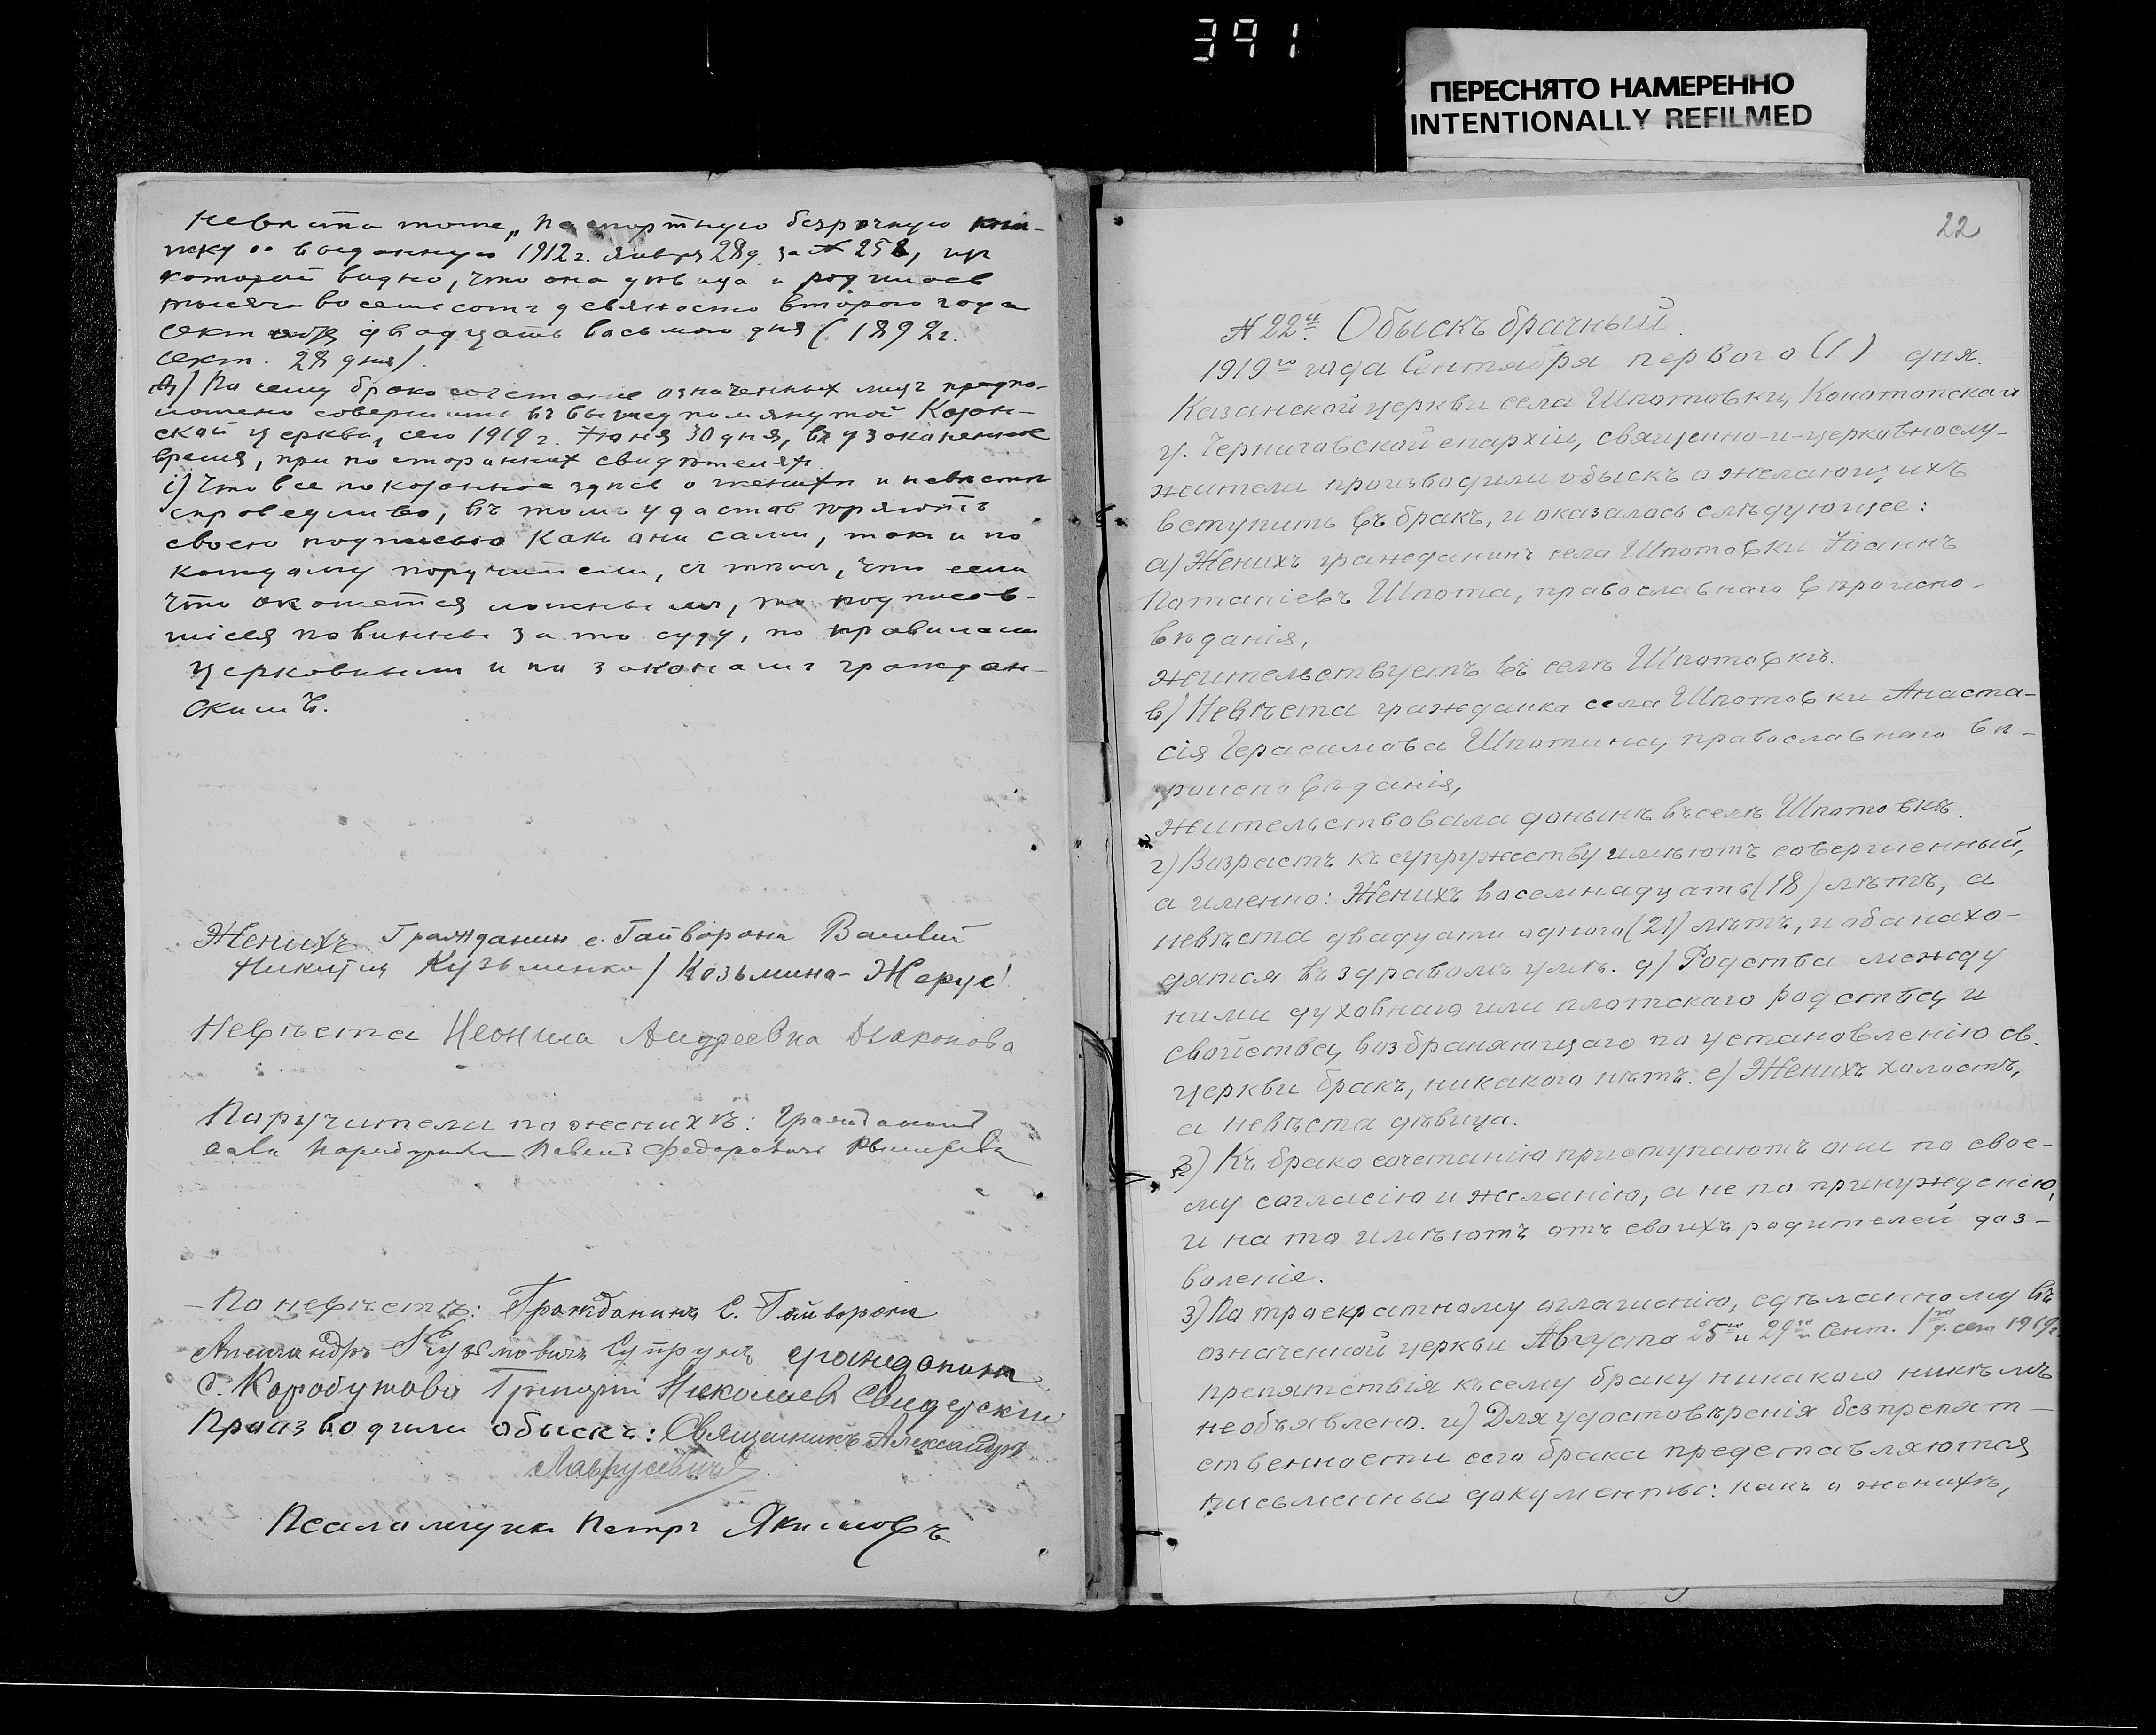 391
ПЕРЕСНЯТО НАМЕРЕННО
INTENTIONALLY REFILMED
Невѣста тоже „Паспортную безсрочную кни-
жку“ выданную 1912 г. Января 28 д. за №
которой видно, что она дѣвица и родилась
тысяча восемьсотъ девяносто второго года
двадцать восьмого дня (1892 г.
28 дня).
По сему бракосочетаніе означенныхъ лицъ предпо-
ложено совершить въ вышеупомянутой Казан-
ской церкви, сего 1919 г. Іюня 30 дня, въ узаконенное
время, при постороннихъ свидѣтеляхъ.
і) Что все показанное здѣсь о женихѣ и невѣстѣ
справедливо, въ томъ удостовѣряютъ
своею подписью какъ они сами, такъ и по
каждому поручители, съ тѣмъ, что если
что окажется ложнымъ, то подписав-
шіеся повинны за то суду, по правиламъ
церковнымъ и по законамъ граждан-
скимъ.
Женихъ Гражданин с. Гайворона
Никитич Кузьменко / Козьмина-Жерус!
Невѣста Неонила Андреевна Дьяконова
Поручители по женихѣ:
Павелъ Федоровичъ
- По невѣстѣ: Гражданинъ С. Гайворона
Александръ Кузьмовичъ Супрунъ гражданинъ
с. Коробутова Григорій Николаев Свидерскій
Производили обыскъ: Священникъ Александръ
Лаврусевичъ
Псаломщикъ Петръ Якимовъ
22
№ 22й. Обыскъ брачный.
1919го года Сентября перваго (1) дня.
Казанской церкви села Шпотовки, Конотопскаго
у. Черниговской епархіи, священно-и-церковнослу-
жители производили обыскъ о желающихъ
вступить въ бракъ, и оказалось слѣдующее:
а) Женихъ гражданинъ села Шпотовки Іоаннъ
Потапіевъ Шпота, православнаго вѣроиспо-
вѣданія,
жительствуетъ въ селѣ Шпотовкѣ.
в) Невѣста гражданка села Шпотовки Анаста-
сія Герасимова Шпотина, православнаго вѣ-
роисповѣданія,
жительствовала донынѣ въ селѣ Шпотовкѣ.
г) Возрастъ къ супружеству имѣютъ совершенный,
а именно: Женихъ восемнадцать (18) лѣтъ, а
невѣста двадцати одного (21) лѣтъ, и оба нахо-
дятся въ здравомъ умѣ. д) Родства между
ними духовнаго или плотскаго родства, и
свойства, возбраняющаго по установленію св.
церкви бракъ, никакого нѣтъ. е) Женихъ холостъ,
а невѣста дѣвица.
) Къ бракосочетанію приступаютъ они по свое-
му согласію и желанію, а не по принужденію,
и на то имѣютъ отъ своихъ родителей доз-
воленіе.
з) По троекратному оглашенію, сдѣланному въ
означенной церкви Августа 25го и 29го и Сент. 1го д. сего 1919 г.
препятствія къ сему браку никакого никѣмъ
не объявлено. и) Для удостовѣренія безпрепят-
ственности сего брака представляются
письменные документы: какъ о женихѣ,